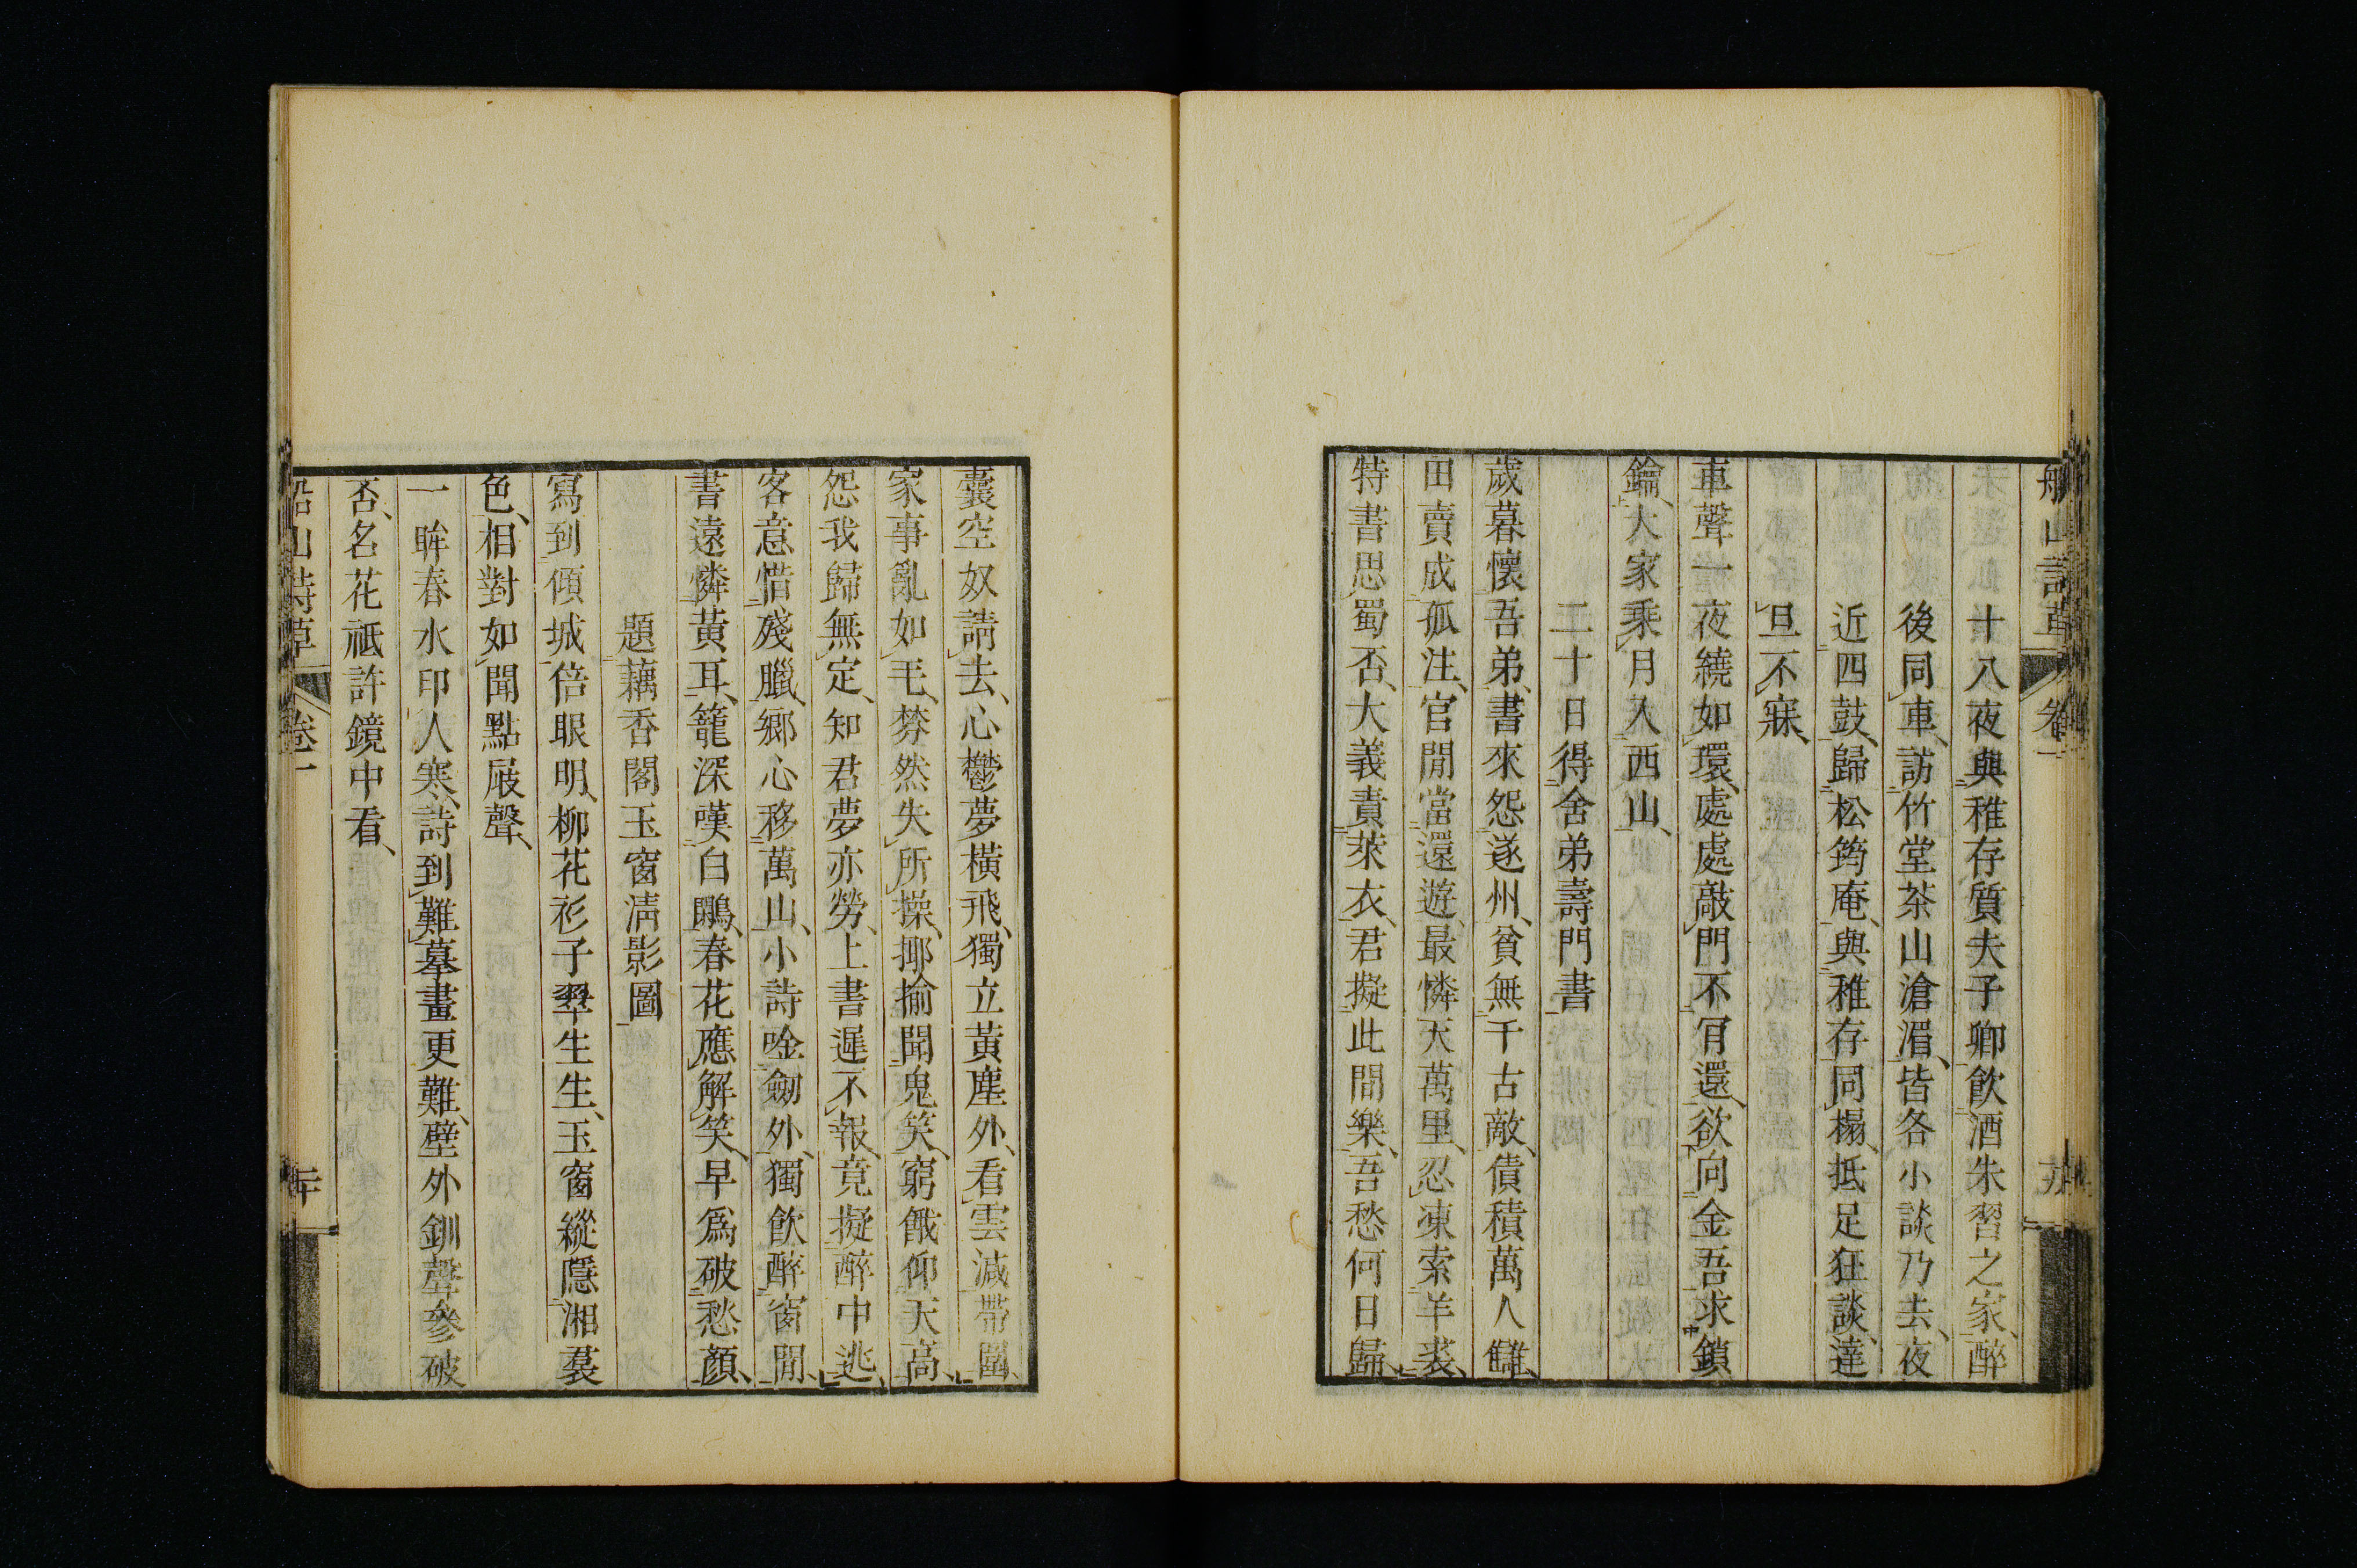 船山詩草 卷一
十八夜與稚存質夫子卿飲酒朱習之家、醉
後同車、訪竹堂茶山滄湄、皆各小談乃去、夜
近四鼓、歸松筠庵、與稚存同榻、抵足狂談、達
旦不寐、
車聲一夜繞如環、處處敲門不肎還、欲向金吾求鎖
鑰、大家乘月入西山、
二十日得舍弟壽門書
歲暮懷吾弟、書來怨遂州、貧無千古敵、債積萬人讎、
田賣成孤注、官閒當遠遊、最憐天萬里、忍凍索羊裘、
特書思蜀否、大義責萊衣、君擬此間樂、吾愁何日歸、
囊空奴請去、心鬱夢橫飛、獨立黃塵外、看雲減帶圍、
家事亂如毛、棼然失所操、揶揄聞鬼笑、窮餓仰天高、
怨我歸無定、知君夢亦勞、上書遲不報、竟擬醉中逃、
客意惜殘臘、鄉心移萬山、小詩唫劒外、獨飲醉窗閒、
書遠憐黃耳、籠深嘆白鷴、春花應解笑、早爲破愁顏、
題藕香閣玉窗淸影圖
寫到傾城倍眼明、柳花衫子翠生生、玉窗縱隱湘裠
色、相對如聞點屐聲、
一眸春水印人寒、詩到難摹畫更難、壁外釧聲參破
否、名花祗許鏡中看、
船山詩草 卷一 二十